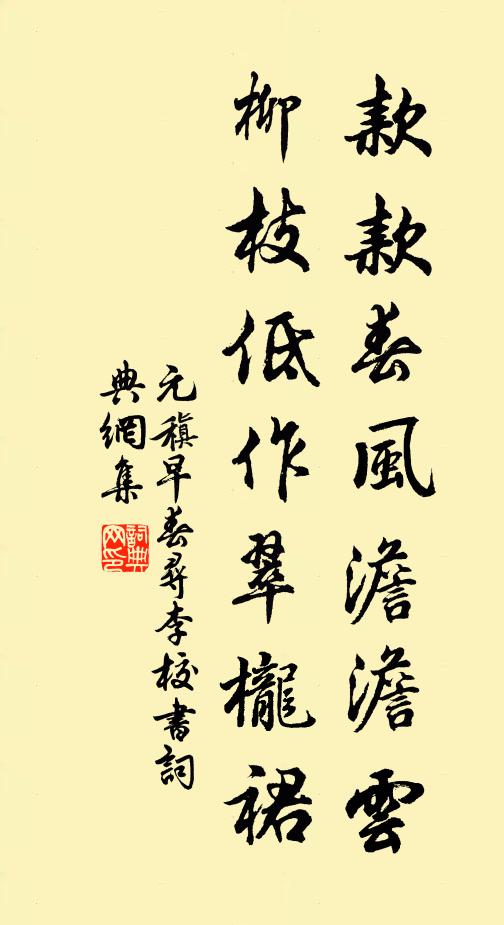 款款春風澹澹雲
柳枝低作翠櫳裙
元稹早春尋李校書詞
典網集
詞典網印